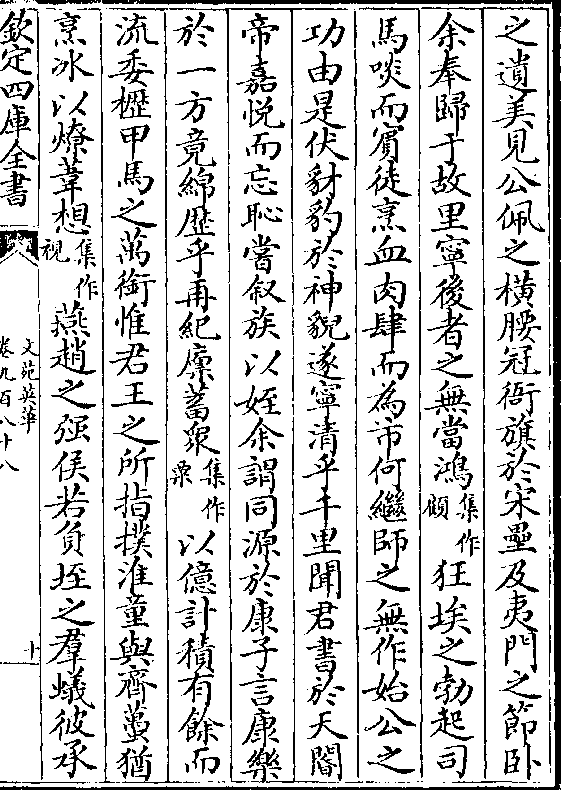 之遺美見公佩之横腰冠衙旗於宋壘及夷門之節卧
余奉歸于故里寧後者之無當鴻集作顧狂埃之勃起司
馬啖而賓徒烹血肉肆而為市何繼師之無作始公之
功由是伏豺豹於神貎遂寧清乎千里聞君書於天閽
帝嘉悦而忘恥嘗叙族以姪余謂同源於康子言康樂
於一方竟綿歴乎再紀廪蓄衆集作粟以億計積有餘而
流委櫪甲馬之萬銜惟君王之所指撲淮童與齊蠆猶
烹冰以燎葦想集作視燕趙之强侯若負垤之羣蟻彼承
欽定四庫全書
文苑英華
卷九百八十八
十